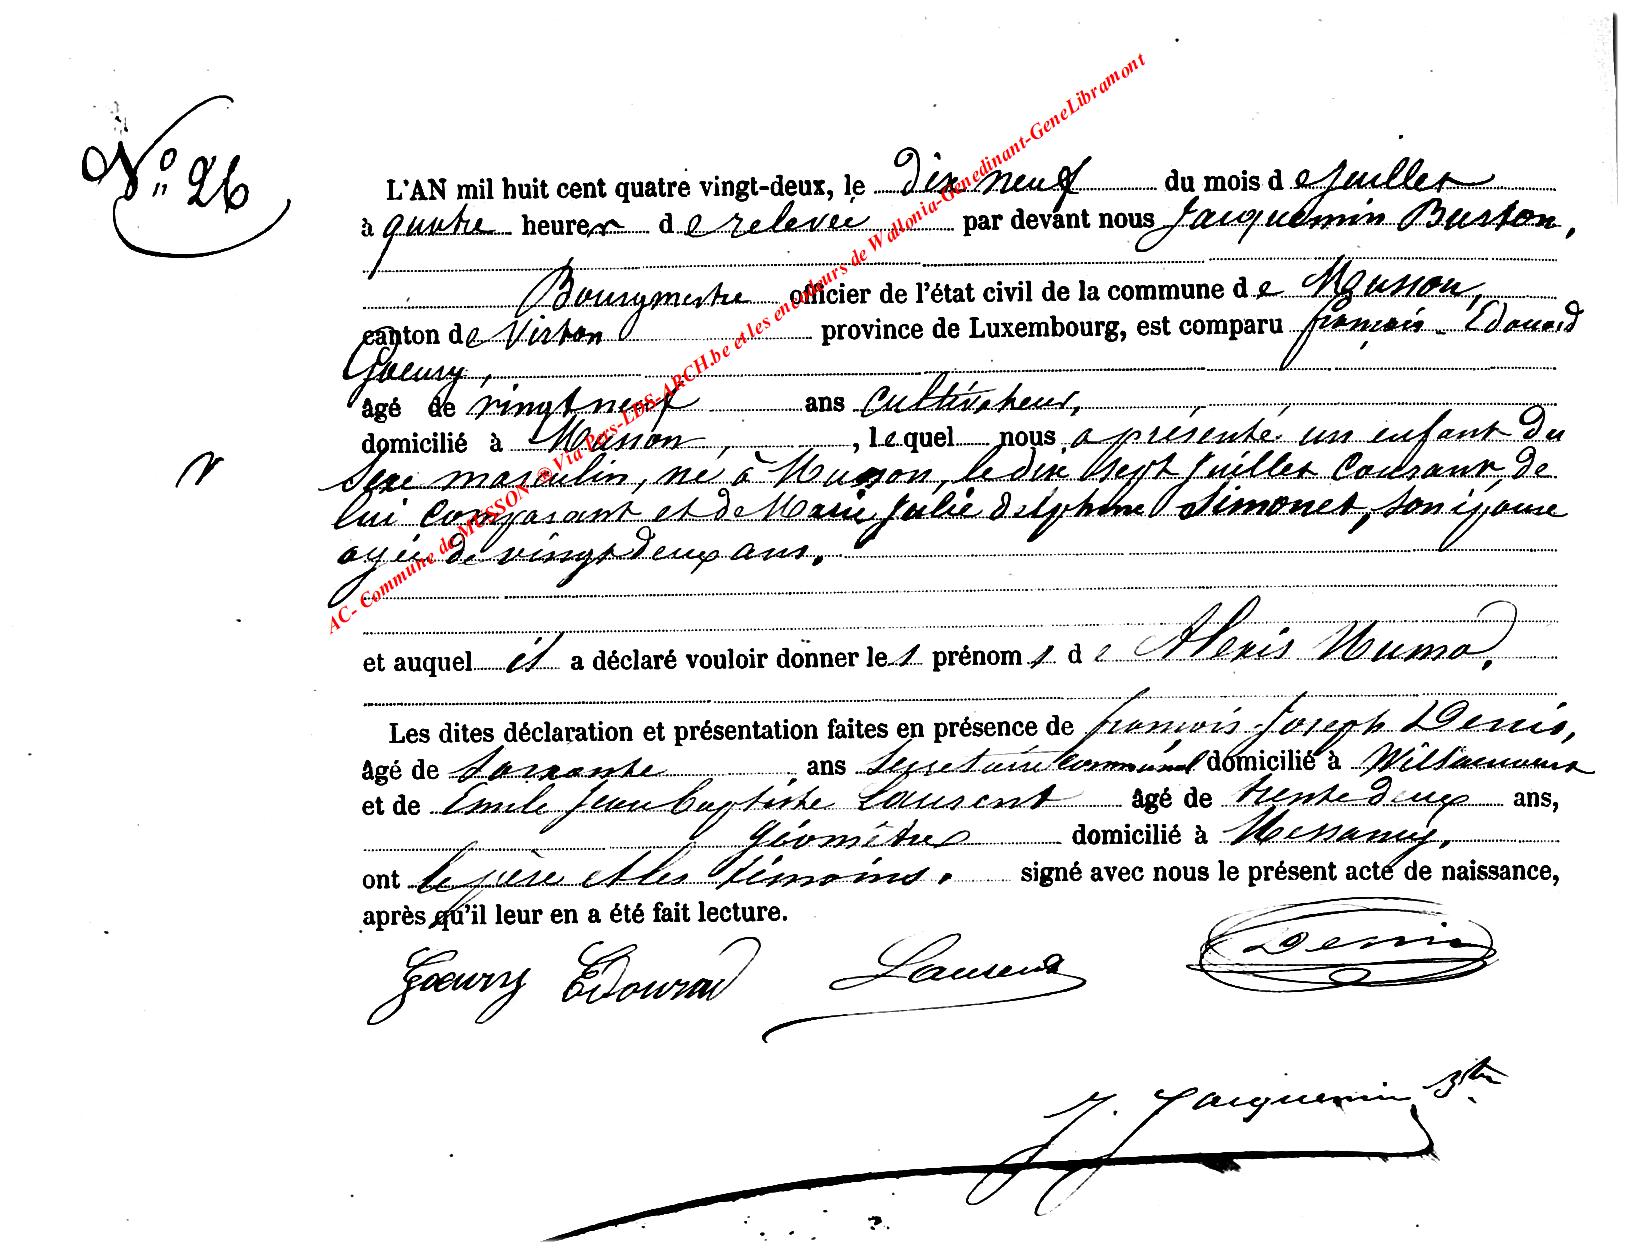 N° 26
L'AN mil huit cent quatre vingt-deux, le dix neuf du mois de Juillet
à quatre heures de relevée par devant nous Jacquemin Burton,
Bourgmestre officier de l'état civil de la commune de Musson,
canton de Virton province de Luxembourg, est comparu françois-Edouard
Goeury,
âgé de vingt neuf ans cultivateur,
domicilié à Musson, , lequel nous a présenté un enfant du
sexe masculin, né à Musson, le dix sept Juillet courant, de
lui comparant et de Marie Julie Delphine Simonet, son épouse
agée de vingt deux ans.
et auquel il a déclaré vouloir donner les prénoms de Alexis Numa.
Les dites déclaration et présentation faites en présence de françois-Joseph Denis,
âgé de soixante ans Secrétaire communal domicilié à Willancourt
et de Emile Jean Baptiste Laurent âgé de trente deux ans,
géomètre domicilié à Messancy,
ont le père et les témoins. signé avec nous le présent acte de naissance,
après qu'il leur en a été fait lecture.
Goeury Edouard Laurent Denis
J. Jacquemin Btn
AC- Commune de MUSSON @ Via Pers-LDS-ARCH.be et les encodeurs de Wallonia-Genedinant-GeneLibramont